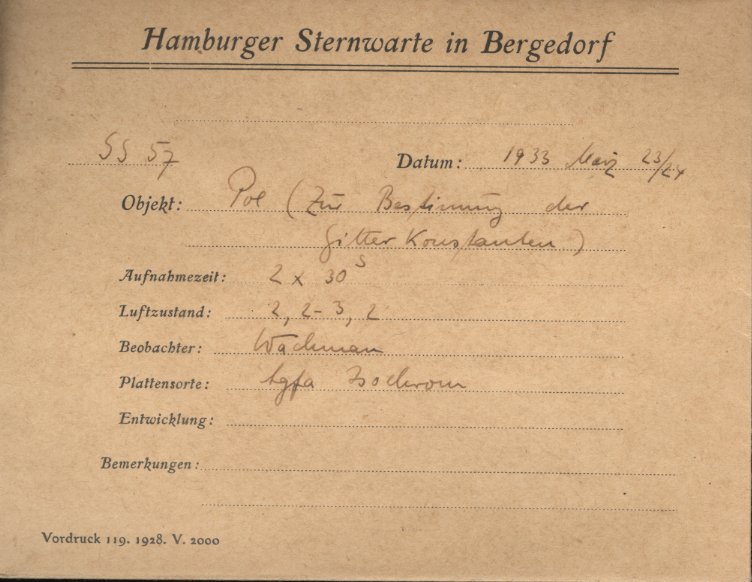 Hamburger Sternwarte in Bergedorf
SS 57 Datum: 1933 März 23/24
Objekt: Pol (Zur Bestimmung der
Gitter Konstanten)
Aufnahmezeit: 2 x 30 s
Luftzustand: 2, 2-3, 2
Beobachter: Wachmann
Plattensorte: Agfa Isochrom
Entwicklung:
Bemerkungen:
Vordruck 119. 1928. V. 2000